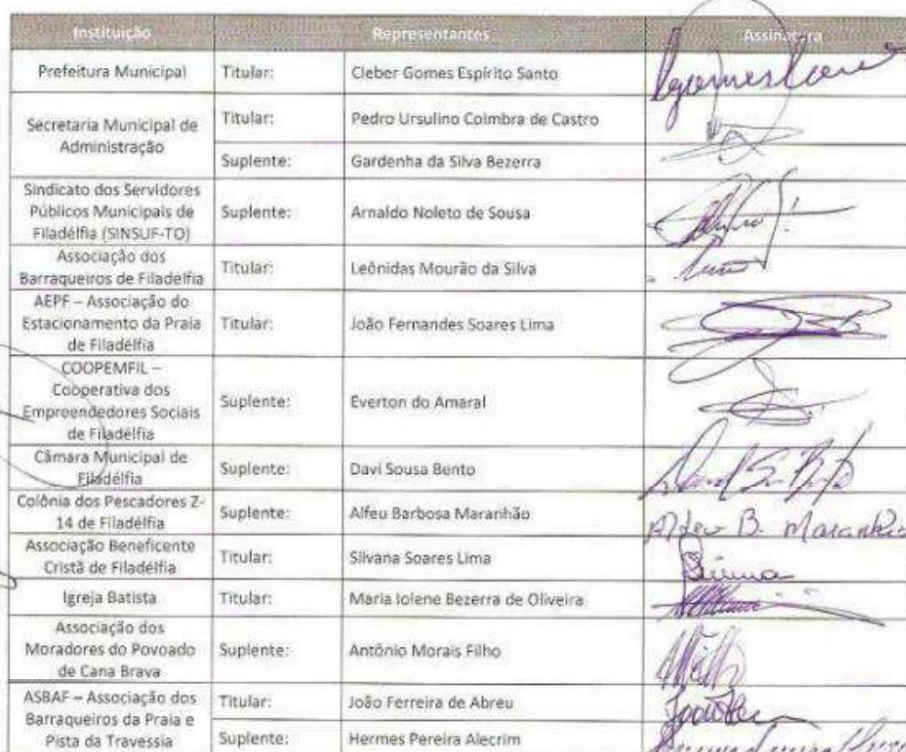 Instituição Representantes Assinatura
Prefeitura Municipal Titular: Cleber Gomes Espírito Santo
Secretaria Municipal de
Administração
Titular: Pedro Ursulino Coimbra de Castro
Suplente: Gardenha da Silva Bezerra
Sindicato dos Servidores
Públicos Municipais de
Filadélfia (SINSUF-TO)
Suplente: Arnaldo Noleto de Sousa
Associação dos
Barraqueiros de Filadélfia
Titular: Leônidas Mourão da Silva
AEPF – Associação do
Estacionamento da Praia
de Filadélfia
Titular: João Fernandes Soares Lima
COOPEMFIL –
Cooperativa dos
Empreendedores Sociais
de Filadélfia
Suplente: Everton do Amaral
Câmara Municipal de
Filadélfia
Suplente: Davi Sousa Bento
Colônia dos Pescadores Z-
14 de Filadélfia
Suplente: Alfeu Barbosa Maranhão
Alfeu B. Maranhão
Associação Beneficente
Cristã de Filadélfia
Titular: Silvana Soares Lima
Igreja Batista Titular: Maria Iolene Bezerra de Oliveira
Associação dos
Moradores do Povoado
de Cana Brava
Suplente: Antônio Morais Filho
ASBAF – Associação dos
Barraqueiros da Praia e
Pista da Travessia
Titular: João Ferreira de Abreu
Suplente: Hermes Pereira Alecrim